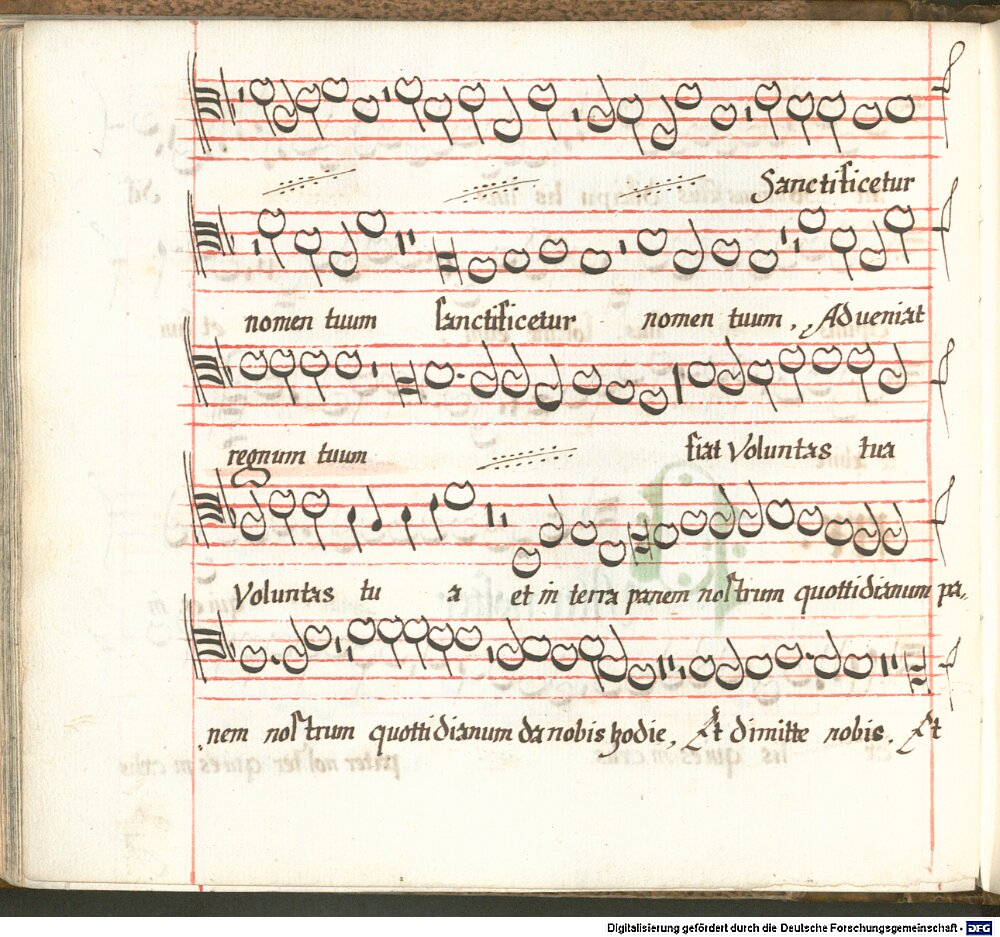 Sanctificetur
nomen tuum sanctificetur nomen tuum, Adueniat
regnum tuum fiat voluntas tua
voluntas tu a et in terra panem nostrum quottidianum pa,
,nem nostrum quottidianum da nobis hodie, Et dimitte nobis. Et
Digitalisierung gefördert durch die Deutsche Forschungsgemeinschaft - DFG